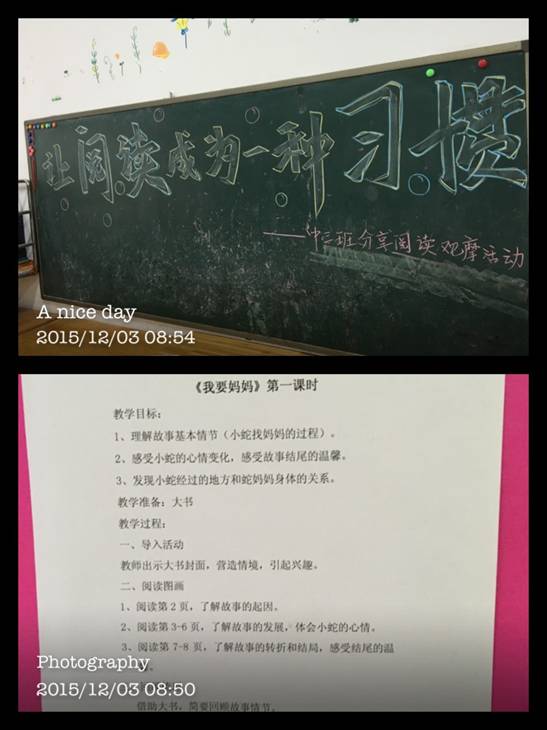 让阅读成为一种习惯
——中三班分享阅读观摩活动
A nice day
2015/12/03 08:54
《我要妈妈》第一课时
教学目标：
1、理解故事基本情节（小蛇找妈妈的过程）。
2、感受小蛇的心情变化，感受故事结尾的温馨。
3、发现小蛇经过的地方和蛇妈妈身体的关系。
教学准备：大书
教学过程：
一、导入活动
教师出示大书封面，营造情境，引起兴趣。
二、阅读图画
1、阅读第 2 页，了解故事的起因。
2、阅读第 3-6 页，了解故事的发展，体会小蛇的心情。
3、阅读第 7-8 页，了解故事的转折和结局，感受结尾的温
Photography
2015/12/03 08:50
借助大书，简要回顾故事情节。